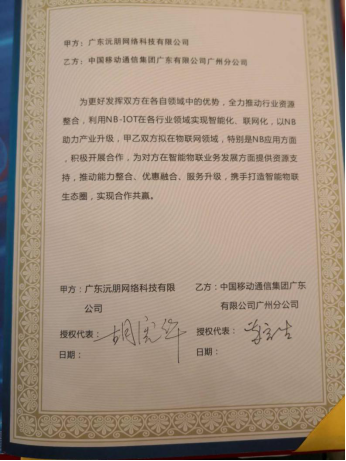 甲方：广东沅朋网络科技有限公司
乙方：中国移动通信集团广东有限公司广州分公司
为更好发挥双方在各自领域中的优势，全力推动行业资源
整合，利用NB-IOT在各行业领域实现智能化、联网化，以NB
助力产业升级，甲乙双方拟在物联网领域，特别是NB应用方面
，积极开展合作，为对方在智能物联业务发展方面提供资源支
持，推动能力整合、优惠融合、服务升级，携手打造智能物联
生态圈，实现合作共赢。
甲方：广东沅朋网络科技有限
公司
授权代表：
日期：
乙方：中国移动通信集团广东
有限公司广州分公司
授权代表：
日期：